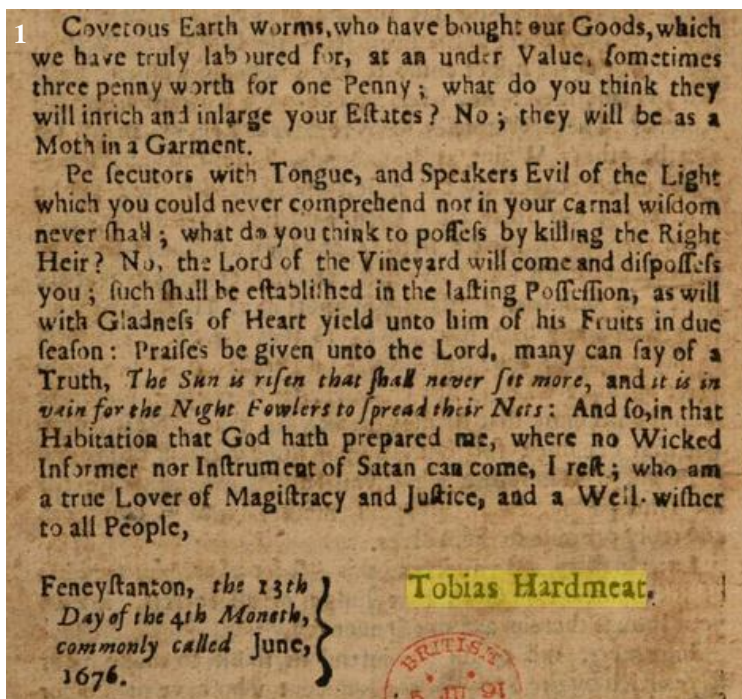 1
Covetous Earth worms, who have bought our Goods, which
we have truly laboured for, at an under Value, ſometimes
three penny worth for one Penny; what do you think they
will inrich and inlarge your Eſtates? No; they will be as a
Moth in a Garment.
Pe ſecutors with Tongue, and Speakers Evil of the Light
which you could never comprehend nor in your carnal wiſdom
never ſhall; what do you think to poſſeſs by killing the Right
Heir? No, the Lord of the Vineyard will come and diſpoſſeſs
you; ſuch ſhall be eſtabliſhed in the laſting Poſſeſſion, as will
with Gladneſs of Heart yield unto him of his Fruits in due
ſeaſon: Praiſes be given unto the Lord, many can ſay of a
Truth, The Sun is riſen that ſhall never ſet more, and it is in
vain for the Night Fowlers to ſpread their Nets: And ſo, in that
Habitation that God hath prepared me, where no Wicked
Informer nor Inſtrument of Satan can come, I reſt; who am
a true Lover of Magiſtracy and Juſtice, and a Well-wiſher
to all People,
Feneyſtanton, the 13th
Day of the 4th Moneth,
commonly called June,
1676.
Tobias Hardmeat.
BRITISH
5 JU 91